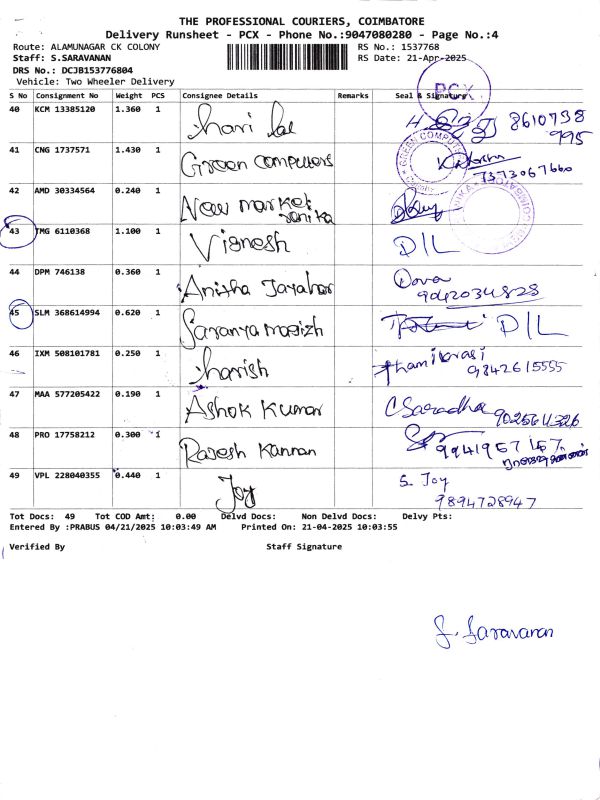 THE PROFESSIONAL COURIERS, COIMBATORE
Delivery Runsheet - PCX - Phone No.:9047080280 - Page No.:4
Route: ALAMUNAGAR CK COLONY
RS No.: 1537768
Staff: S.SARAVANAN
RS Date: 21-Apr-2025
DRS No.: DCJB153776804
Vehicle: Two Wheeler Delivery
PCX
S No Consignment No Weight PCS Consignee Details Remarks Seal & Signature
40 KCM 13385120 1.360 1 hari lal 8610738
995
41 CNG 1737571 1.430 1 Green Computers
GREEN COMPUTERS
7373067660
42 AMD 30334564 0.240 1 New market
43 TMG 6110368 1.100 1 Vignesh D/L
44 DPM 746138 0.360 1 Anitha Jayahar
9042034828
45 SLM 368614994 0.620 1 Saranya D/L
46 IXM 508101781 0.250 1 harish Thamilarasi
9842615555
47 MAA 577205422 0.190 1 Ashok Kumar C Saradha
48 PRO 17758212 0.300 1 Rajesh Kannan
49 VPL 228040355 0.440 1 Joy S. Joy
9894728947
Tot Docs: 49 Tot COD Amt: 0.00 Delvd Docs: Non Delvd Docs: Delvy Pts:
Entered By :PRABUS 04/21/2025 10:03:49 AM Printed On: 21-04-2025 10:03:55
Verified By Staff Signature
S. Saravanan